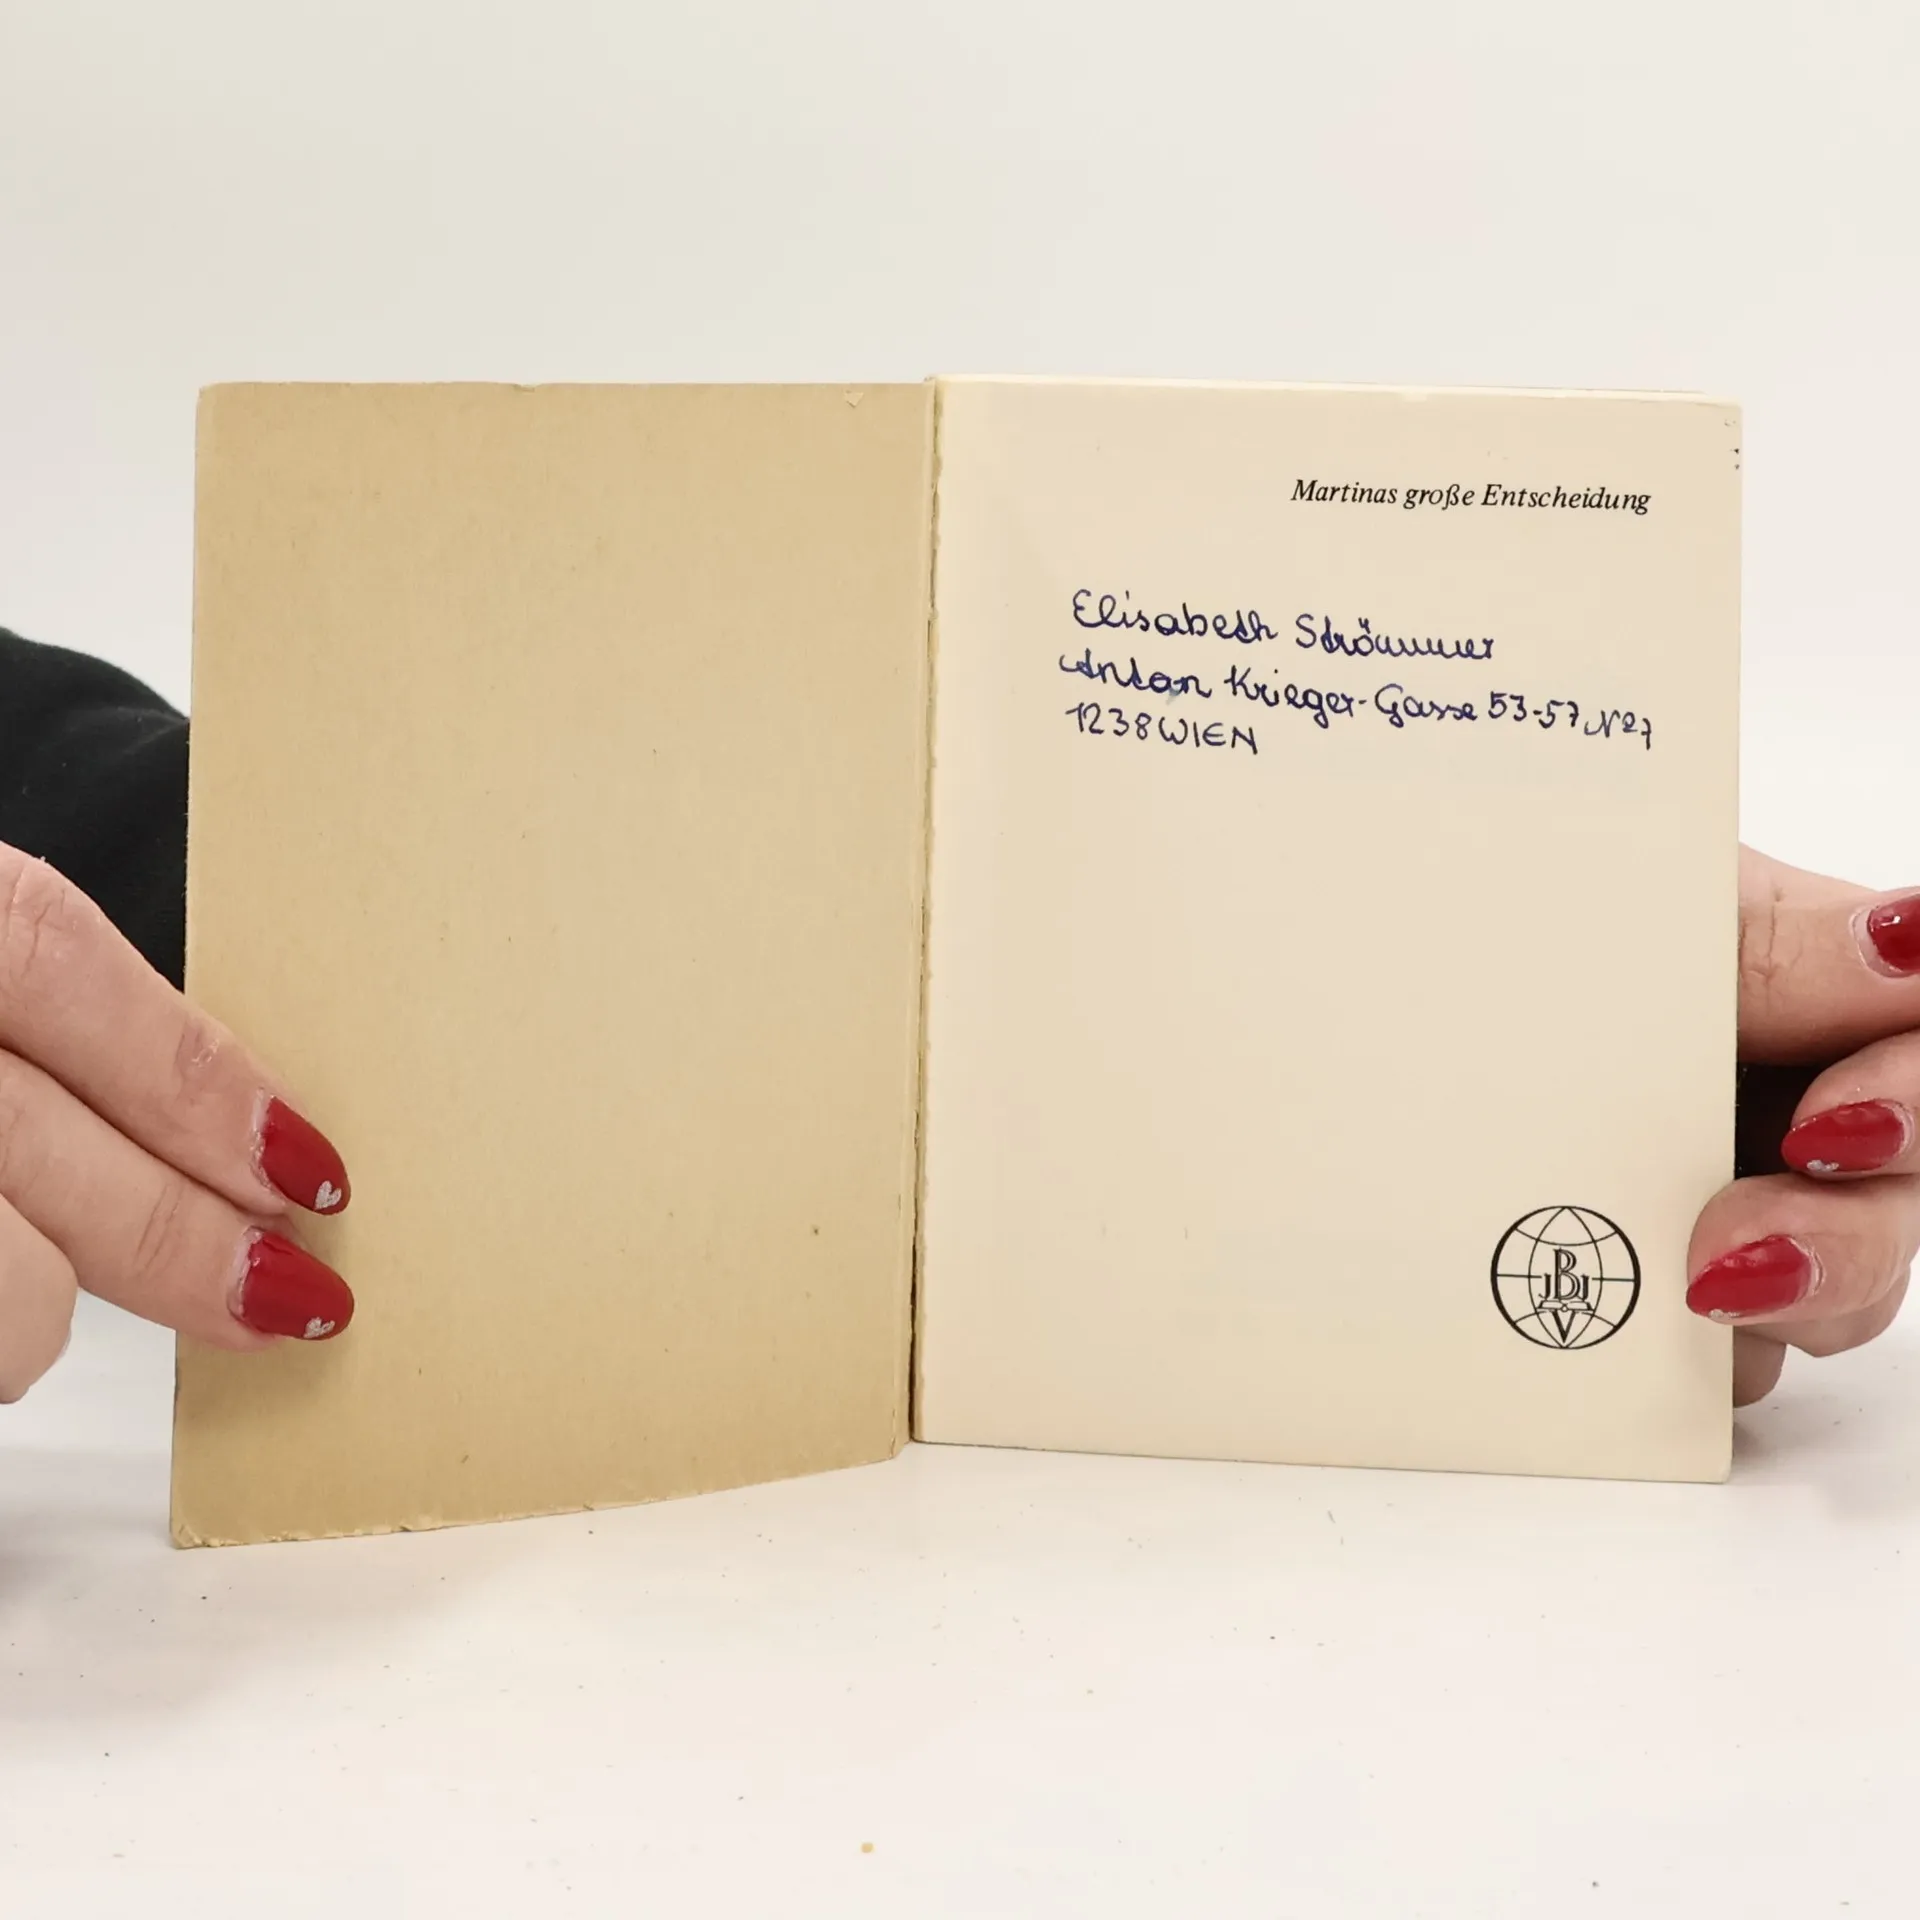 Martinas große Entscheidung
Elisabeth Strömmer
Anton Krieger-Gasse 53-57 N°27
1238 WIEN
JBJ
V